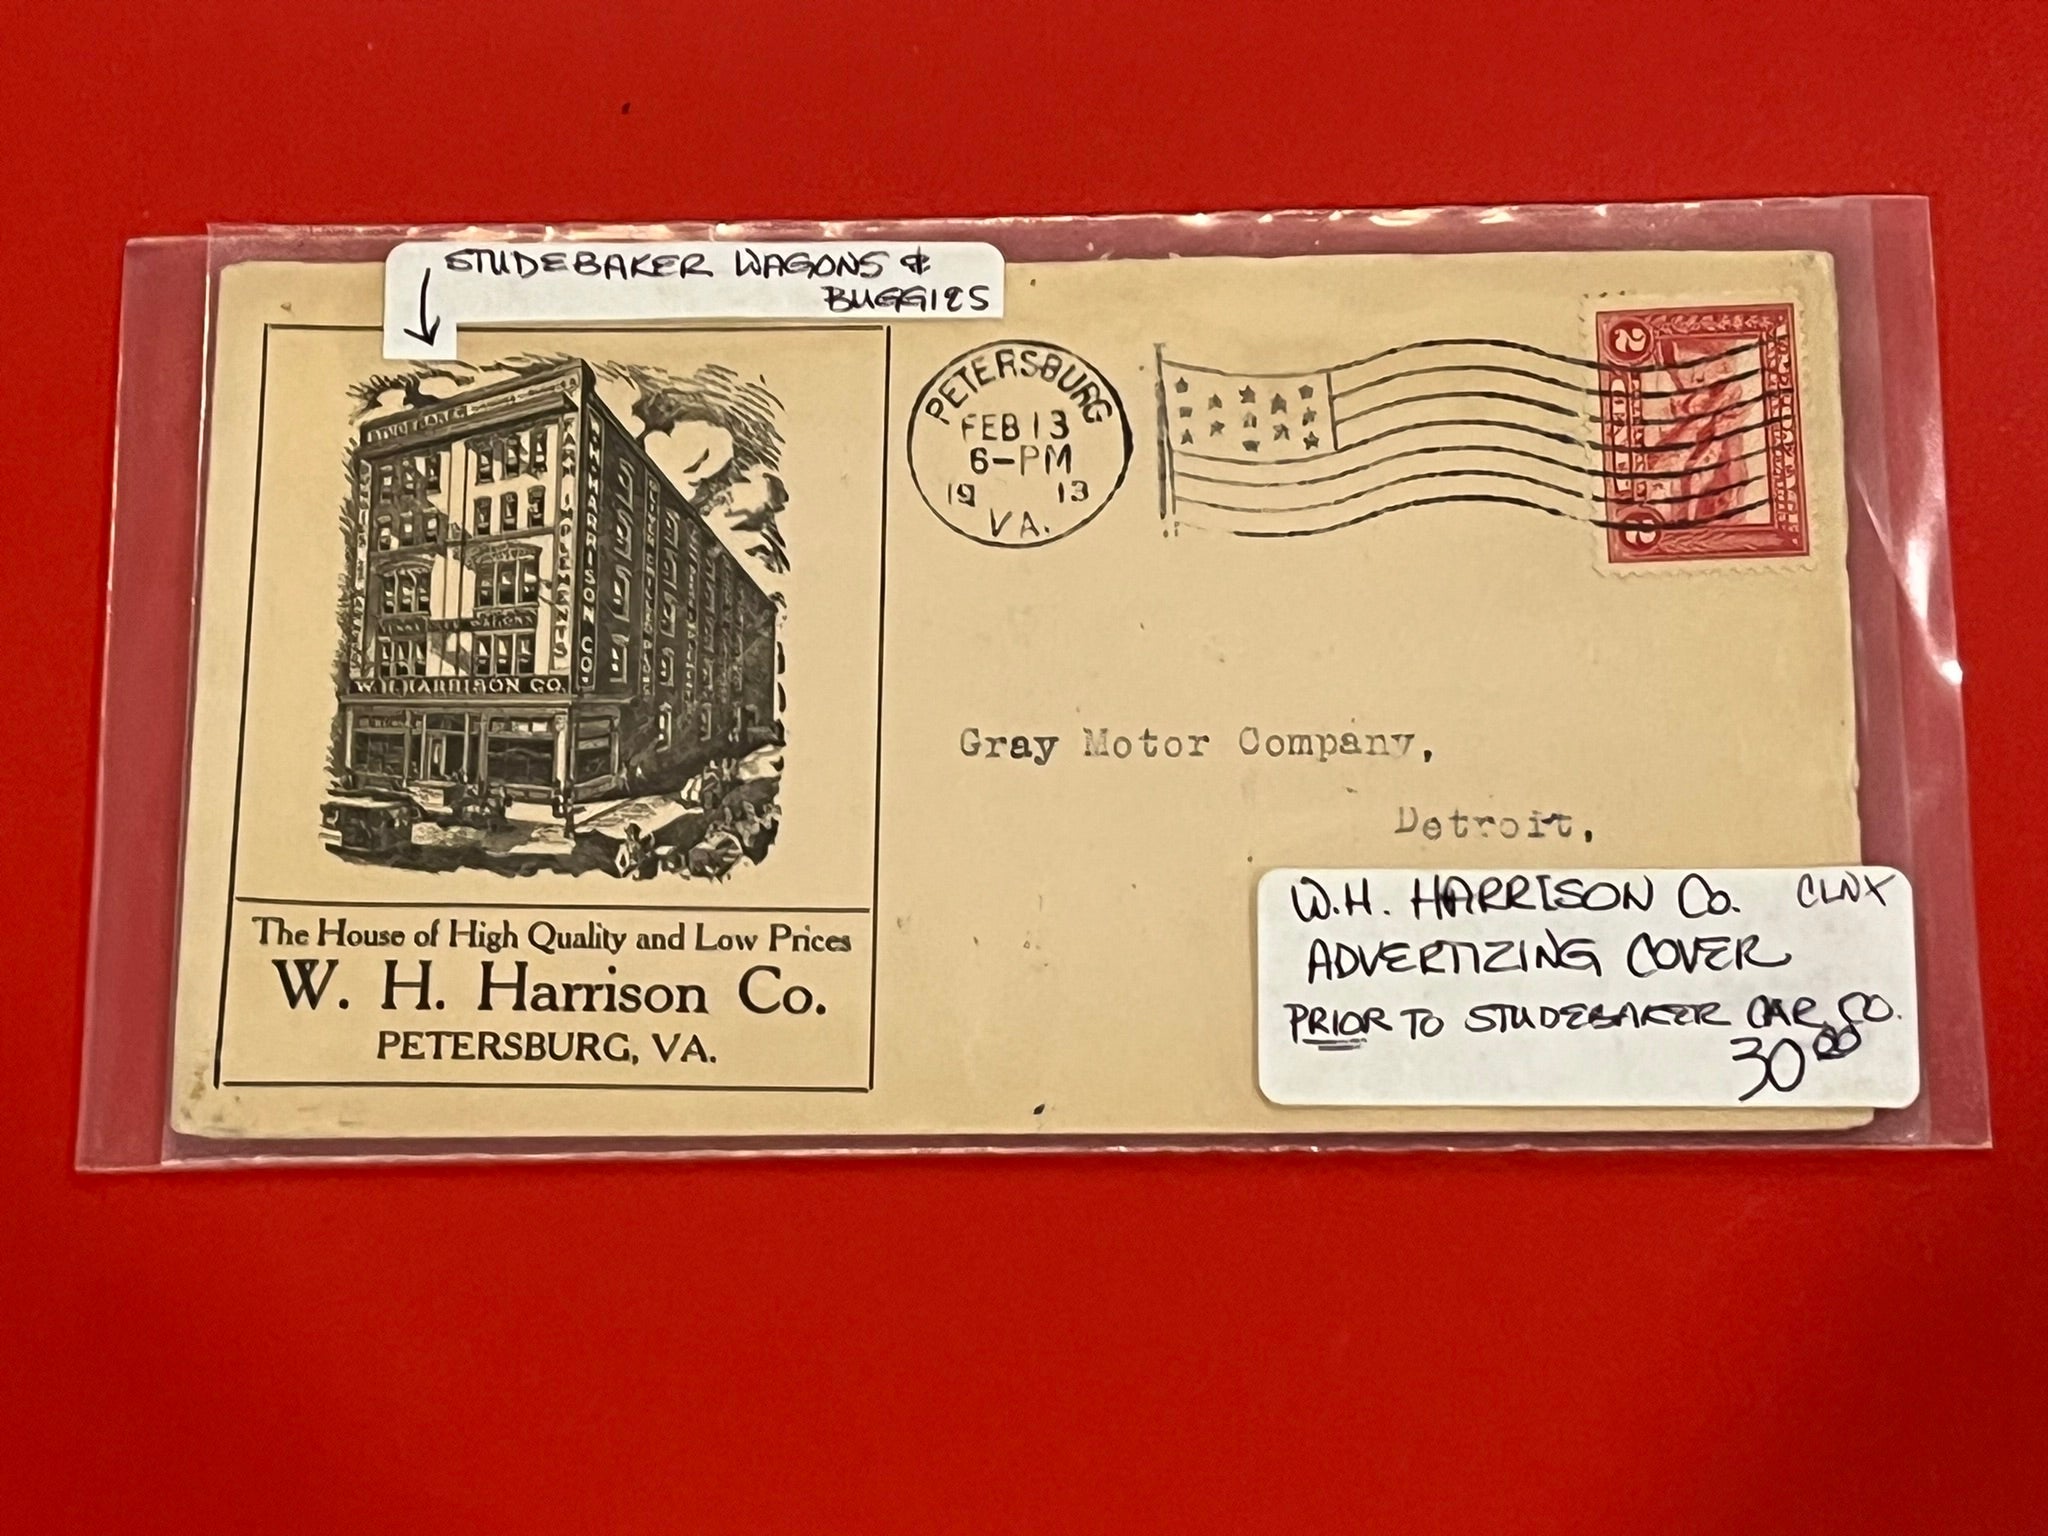 STUDEBAKER WAGONS &
BUGGIES
STUDEBAKER
FARM IMPLEMENTS
W.H. HARRISON CO.
W.H. HARRISON CO.
The House of High Quality and Low Prices
W. H. Harrison Co.
PETERSBURG, VA.
PETERSBURG
FEB 13
6-PM
19 13
VA.
2
2
Gray Motor Company,
Detroit,
W.H. HARRISON CO. CLNX
ADVERTIZING COVER
PRIOR TO STUDEBAKER CAR CO.
30 00